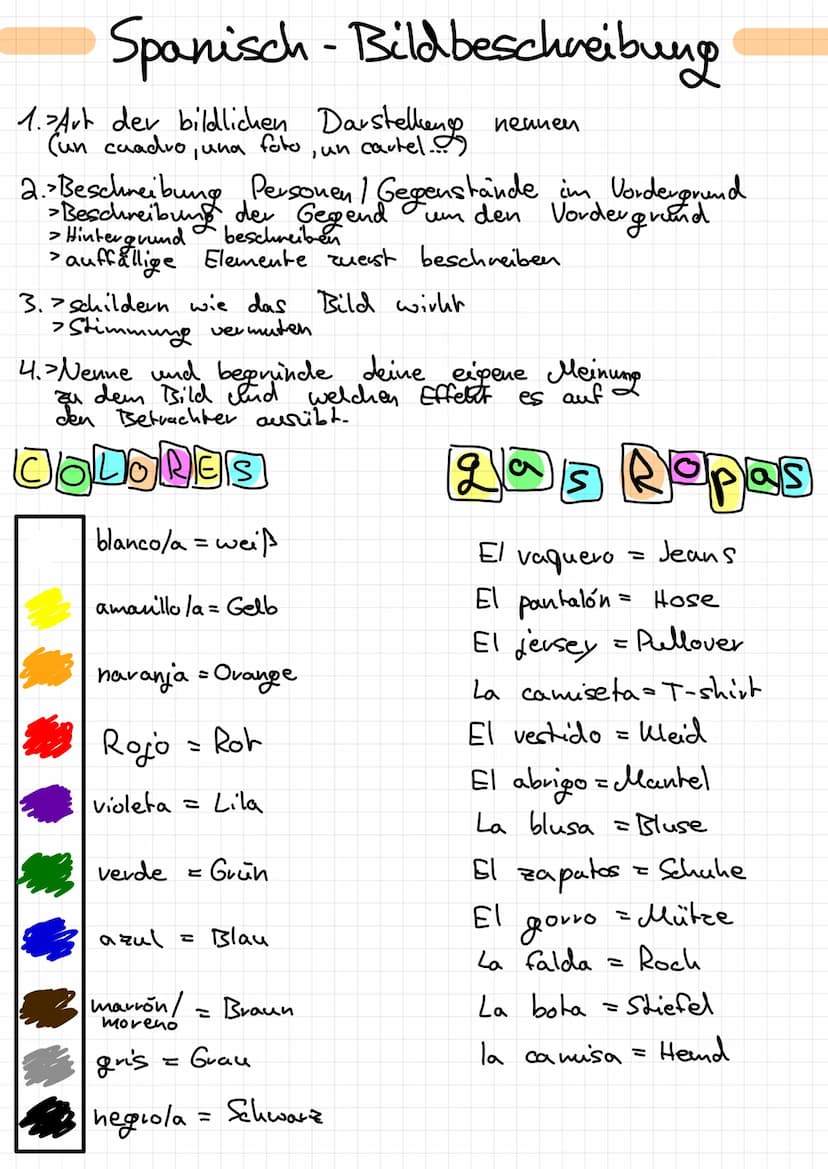 Spanisch - Bildbeschreibung
1.>Art der bildlichen Darstellung nennen
(un cuadro, una foto, un cartel...)
2.>Beschreibung Personen / Gegenstände im Vordergrund
>Beschreibung der Gegend um den Vordergrund
>Hintergrund beschreiben
>auffällige Elemente zuerst beschreiben
3. >schildern wie das Bild wirkt
>Stimmung vermuten
4.>Nenne und begründe deine eigene Meinung
zu dem Bild und welchen Effekt es auf
den Betrachter ausübt.
COLORES
blanco/a = weiß
amarillo/a = Gelb
naranja = Orange
Rojo = Rot
violeta = Lila
verde = Grün
azul = Blau
marrón/
moreno = Braun
gris = Grau
negro/a = Schwarz
Las Ropas
El vaquero = Jeans
El pantalón = Hose
El jersey = Pullover
La camiseta = T-shirt
El vestido = Kleid
El abrigo = Mantel
La blusa = Bluse
El zapatos = Schuhe
El gorro = Mütze
La falda = Rock
La bota = Stiefel
la camisa = Hemd